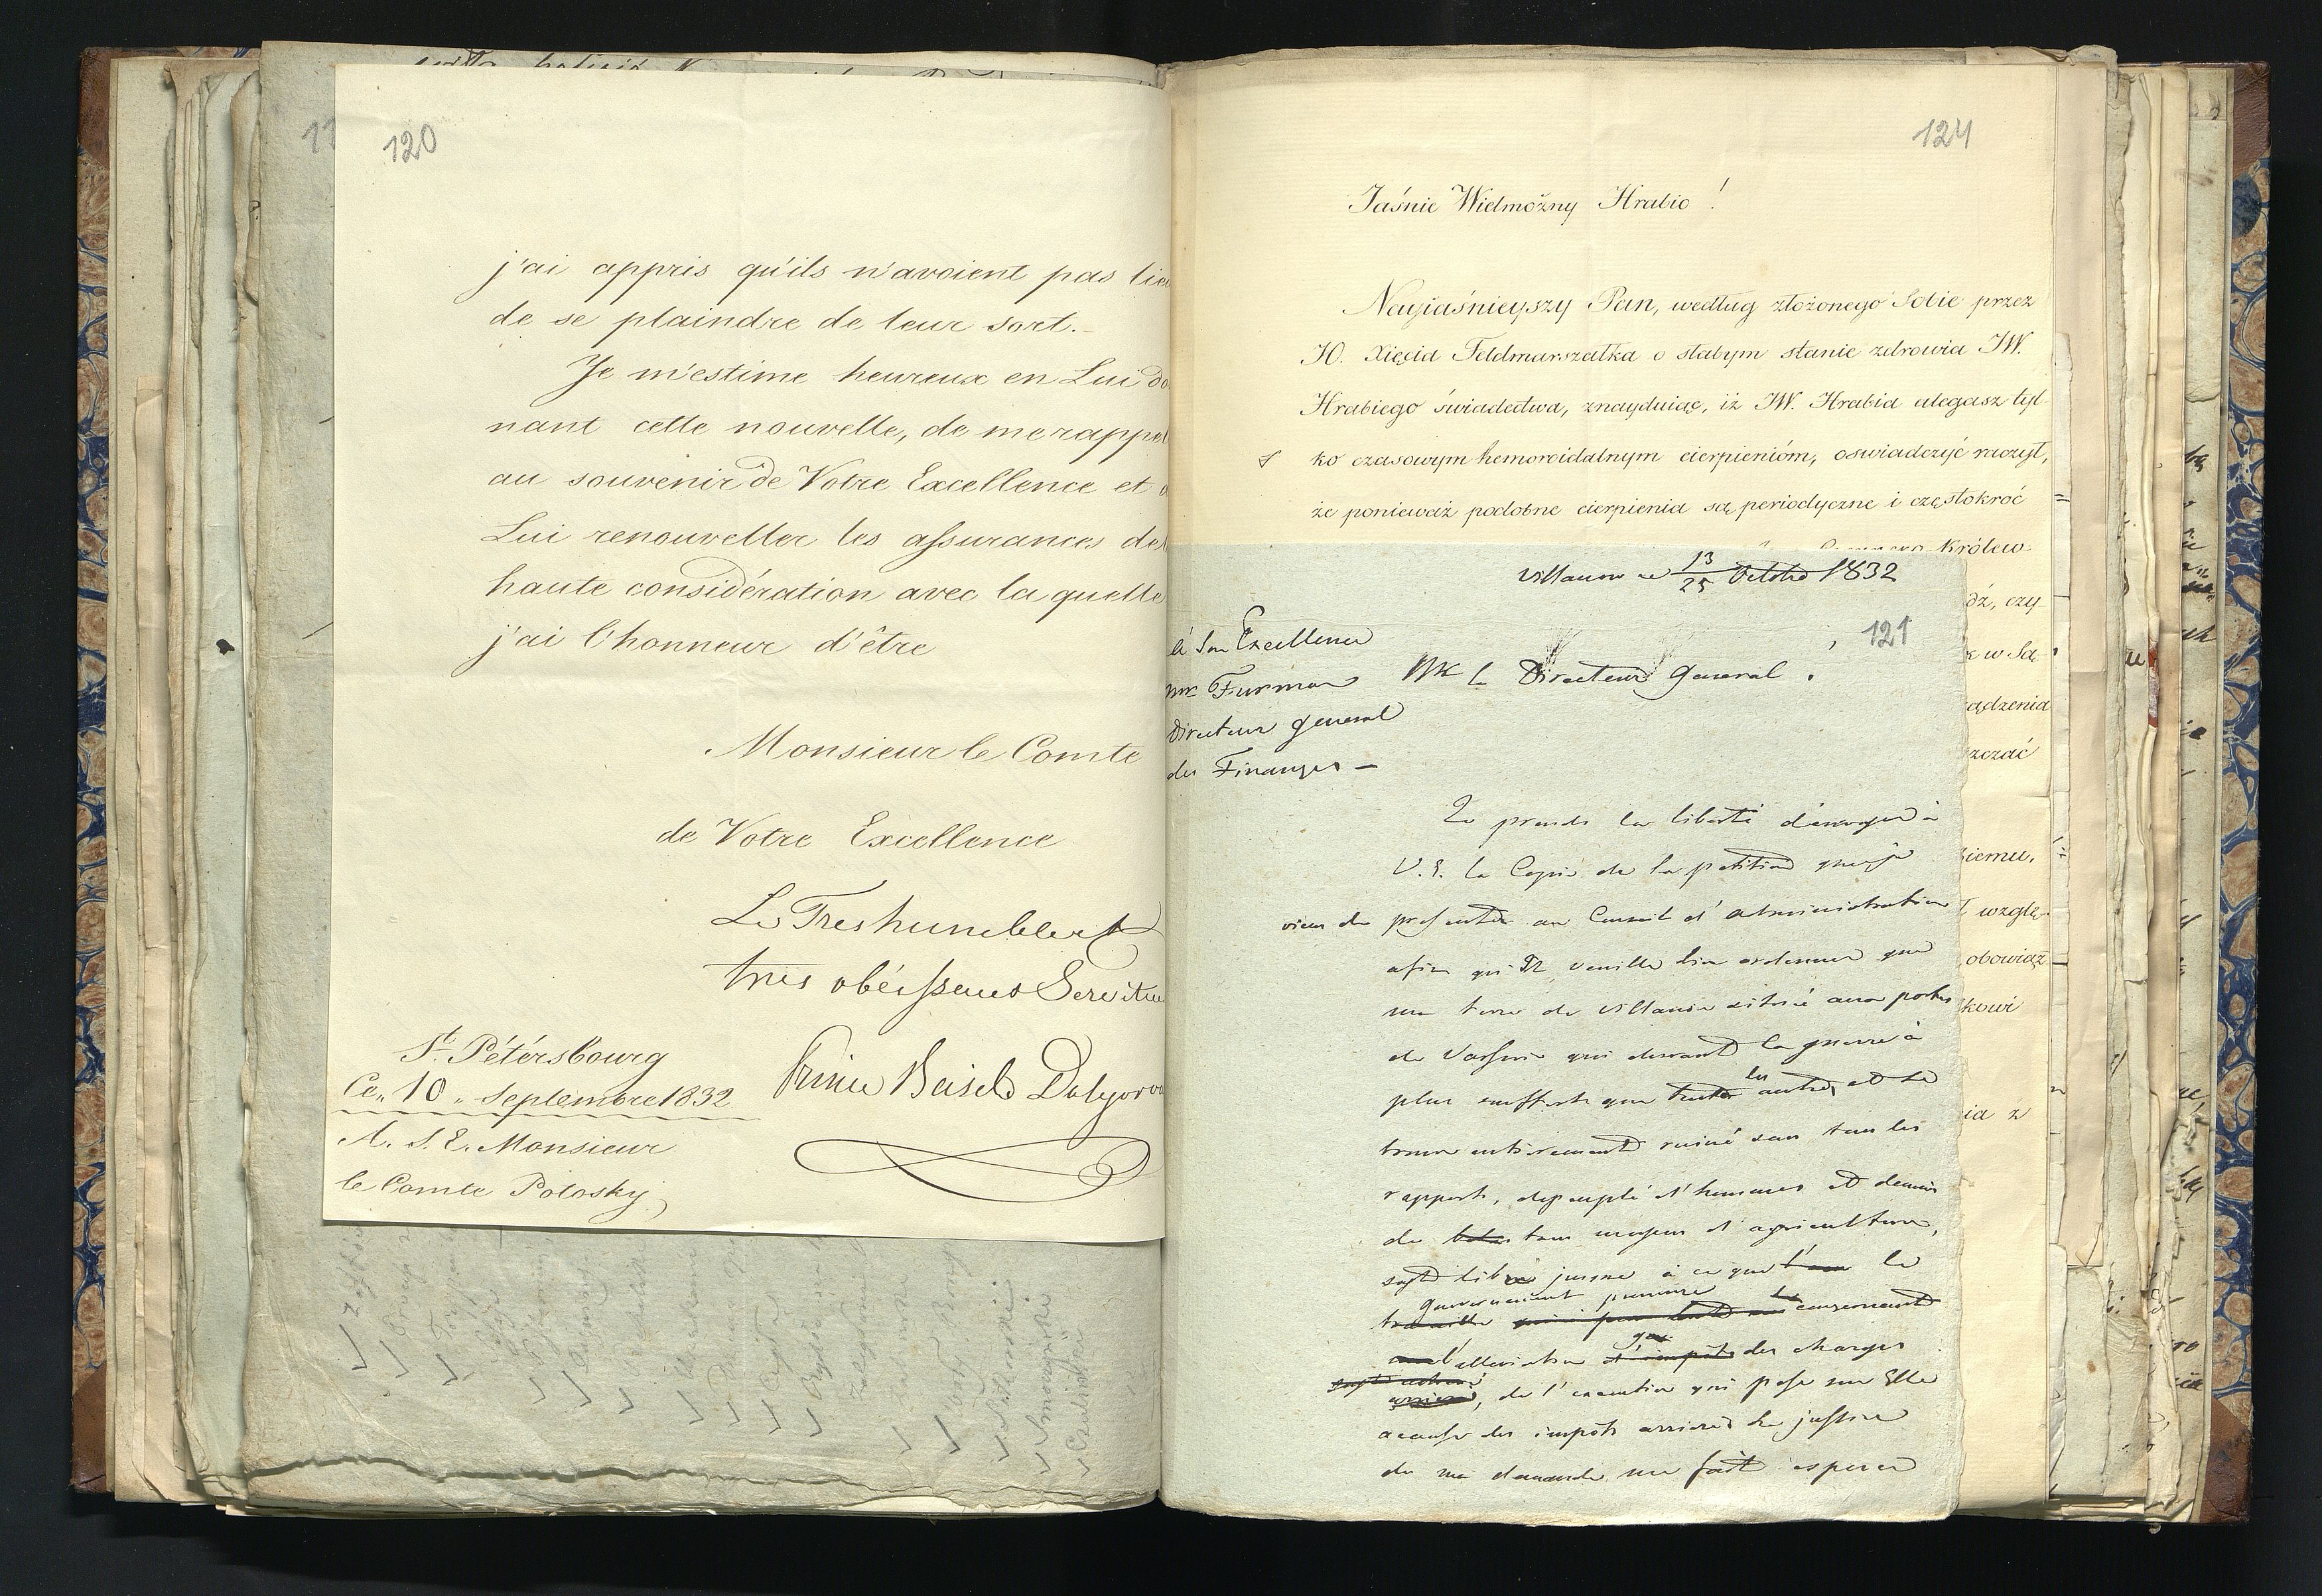 120
j'ai appris qu'ils n'avoient pas lie
de se plaindre de leur sort.-
Je m'estime heureux en Lui do
nant cette nouvelle, de me rappel
au souvenir de Votre Excellence et d
Lui renouveller les assurances de
haute considération avec la quelle
j'ai l'honneur d'être
Monsieur le Comte
de Votre Excellence
Le Tres humble et
très obéissans Servite
Prince Basile Dolgorou
St. Pétérsbourg
Ce„ 10 „ Septembre 1832
A. S. E. Monsieur
le Comte Potosky
124
Jaśnie Wielmożny Hrabio !
Nayiaśnieyszy Pan, według złożonego Sobie przez
JO. Xięcia Feldmarszałka o słabym stanie zdrowia JW.
Hrabiego świadectwa, znayduiąc, iż JW. Hrabia ulegasz tyl-
ko czasowym hemoroidalnym cierpienióm, oswiadczyć raczył,
że ponieważ podobne cierpienia są periodyczne i częstokroć
Królew-
dź, czy-
w Są-
ądzenia
szczać
iemu,
wzglę-
obowiąz-
kowi
ia z
Villanow ce 13/25 Octobre 1832
121
à Son Excellence
Mr Furman
Directeur general
des Finanses —
Mr le Directeur general .
Je prends la liberté d'envoyer à
V. E. la Copie de la petition que je
viens de presenter au Conseil d'administration
afin qu'Il veuille bien ordonner que
ma terre de Villanow située aux portes
de Varsovie qui durant la guerre à
plus souffert que toutes les autres et se
trouve entierement ruiné sous tous les
rapports, depeuplé d'hommes et denué
de tous moyens d'agriculture,
soyt libre jusque à ce que le
Gouvernement prononce
concernant
l'alleviation des charges
, de l'execution qui pese sur Elle
acause des impots arrierés la justice
de ma demande me fait esperer